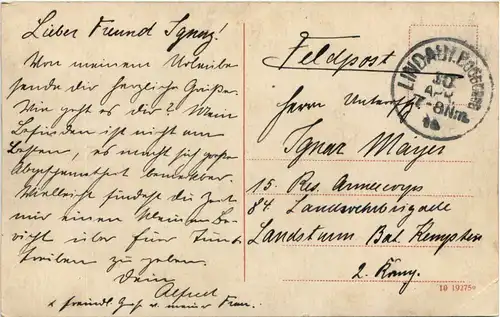 Lieber Freund Ignaz!
Von meinem Urlaube
sende dir herzliche Grüße.
Wie geht es dir? Mein
Befinden ist nicht am
Besten, es macht sich große
bemerkbar.
Vielleicht findest du Zeit
mir einen kleinen Be-
richt über Euer Tun &
Treiben zu geben.
Dein
Alfred
Feldpost
LINDAU i. BODENSEE
Herrn Unteroffz.
Ignaz Mayer
15. Res. Armeecorps
84 Landwehrbrigade
Landsturm Bat. Kempten
2. Komp.
10 19275